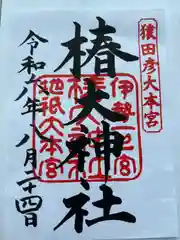 猿田彦大本宮
伊勢一之宮
椿大神社
地祇大本宮
令和六年八月二十四日